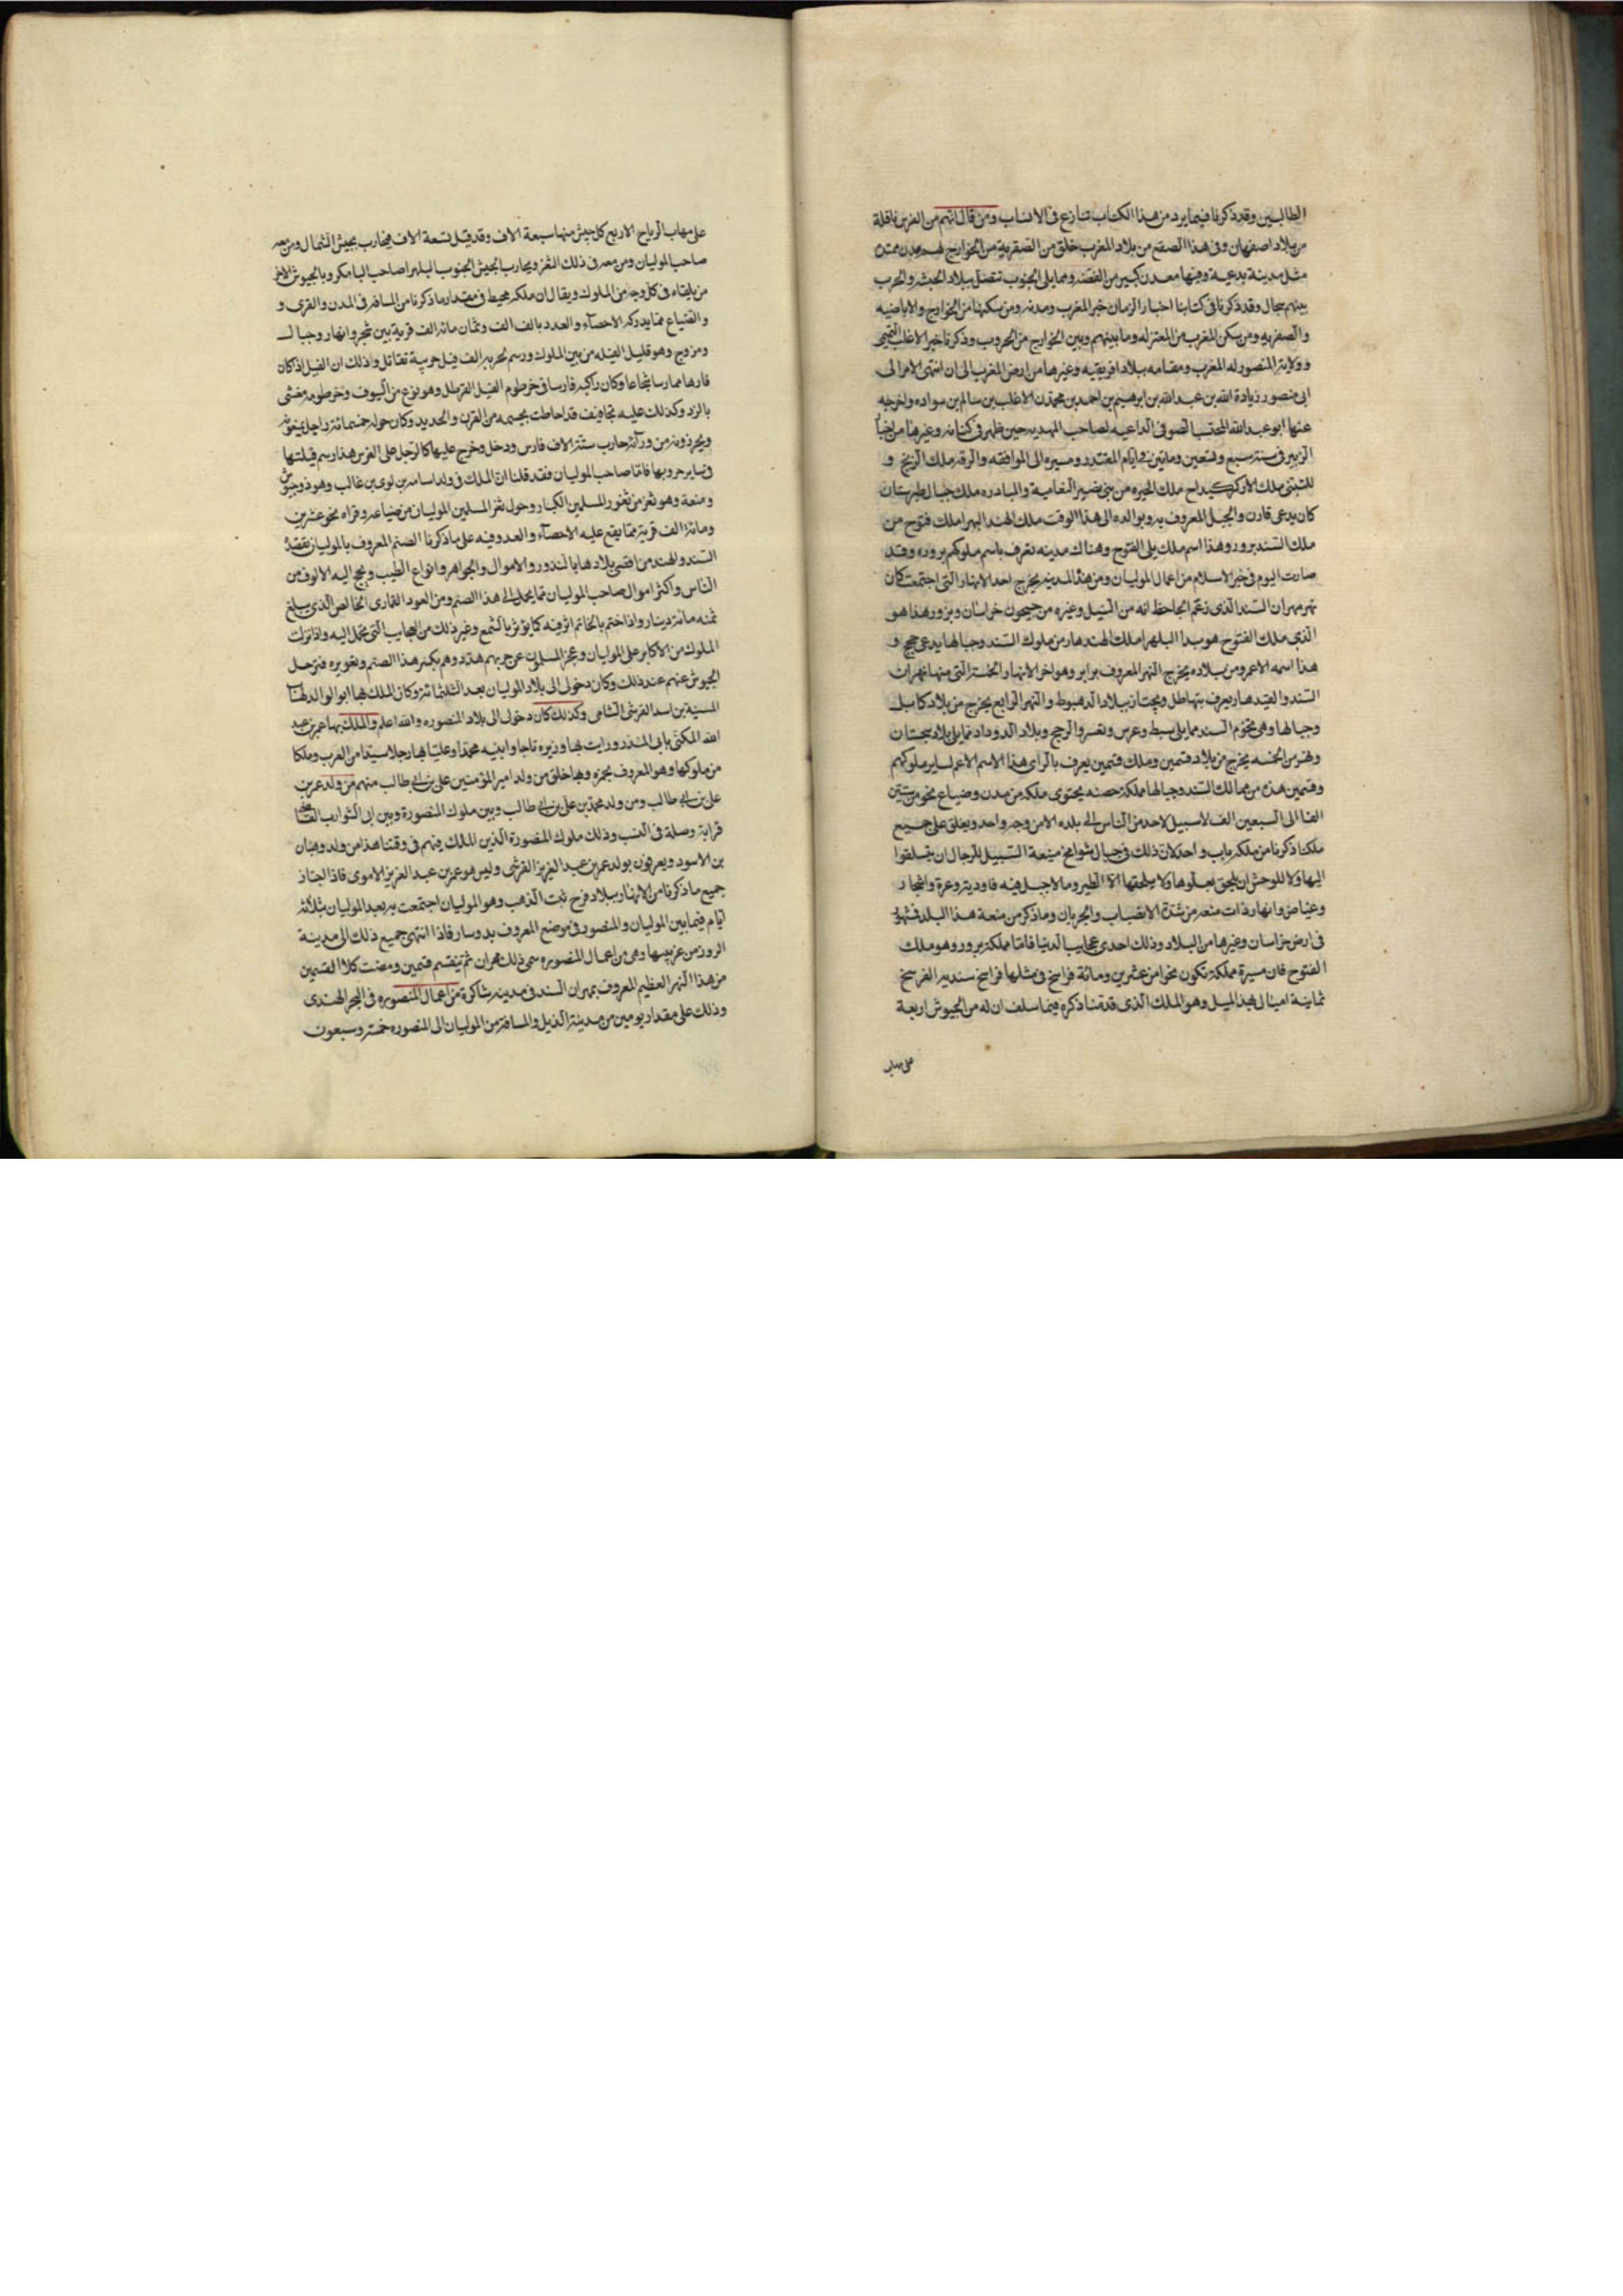 الطالبين وقد ذكرنا فيما يرد من هذا الكتاب تنازع فى الانساب ومن قال انهم من الفرس ناقلة
من بلاد اصفهان وفى هذا الصقع من بلاد المغرب خلق من الصفرية من الخوارج لهم مدن ممتدة
مثل مدينة بدعية وفيها معدن كبير من الفضة ومما يلى الجنوب تتصل ببلاد الحبشة والحرب
بينهم سجال وقد ذكرنا فى كتابنا اخبار الزمان خبر المغرب ومدنه ومن سكنها من الخوارج والاباضيه
والصفريه ومن سكن المغرب من المعتزله وما بينهم وبين الخوارج من الحروب وذكرنا خبر الاغلب التميمى
وولاية المنصور له المغرب ومقامه ببلاد افريقيه وغيرها من ارض المغرب الى ان انتهى الامر الى
ابى منصور زيادة الله بن عبد الله بن ابرهيم بن احمد بن محمد بن الاغلب بن سالم بن سواده واخرجه
عنها ابو عبد الله المحتسب الصوفى الداعيه لصاحب المهديه حين ظهر فى كتامه وغيرها من احيا
البربر فى سنة سبع وتسعين ومأتين فى ايام المقتدر ومسيره الى الموافقه والرقه ملك الزنج و
للتبتى ملك الاركركيداح ملك الحيره من بنى نصير النعامية والمبادره ملك جبال طبرستان
كان يدعى قارن والجبل المعروف به وبوالده الى هذا الوقت ملك الهند البهرا ملك فتوح من
ملك السند برور وهذا اسم ملك يلى الفتوح وهناك مدينه تعرف باسم ملوكهم بروره وقد
صارت اليوم فى خبر الاسلام من اعمال الموليان ومن هذه المدينه يخرج احد الانهار التى اجتمعت كان
نهر مهران السند الذى زعم الجاحظ انه من النيل وغيره من جيحون خراسان وبرور هذا هو
الذى ملك الفتوح هو بدا البلهرا ملك الهندهار من ملوك السند وجبالها يدعى حجج و
هذا اسمه الاعم ومن بلاده يخرج النهر المعروف برابر وهو اخر الانهار الخمسة التى منها نهران
السند والقيدهار يعرف بتهاطل ويجتاز ببلاد الدهبوط والنهر الرابع يخرج من بلاد كابل
وجبالها وهى تخوم السند مما يلى بسط وعرس ونفسر والرحج وبلاد الدوداد مما يلى بلاد سجستان
ونهر من الخمسه يخرج من بلاد قتمين وملك قتمين يعرف بالراى هذا الاسم الاعم لساير ملوكهم
وقتمين هذه من ممالك السند وجبالها مملكة حصنه يحتوى ملكه من مدن وضياع نحو من ستين
الفا الى السبعين الف لا سبيل لاحد من الناس الى بلده الا من وجه واحد ويغلق على جميع
ملكنا ذكرنا من ملكه باب واحد لان ذلك فى جبال شوامخ منيعة السبيل للرجال ان يتسلقوا
اليها ولا للوحش ان يلحق بعلوها ولا يلحقها الا الطير وما لا جبل فيه فاودية وعرة واشجار
وغياض وانهار ذات منعه من شدة الانصباب والجريان وما ذكر من منعة هذا البلد فشهور
فى ارض خراسان وغيرها من البلاد وذلك احدى عجايب الدنيا فاما مملكة برور وهو ملك
الفتوح فان مسيرة مملكة تكون نحوا من عشرين ومائة فراسخ فى مثلها فراسخ سنديه الفرسخ
ثمانية اميال بهذا الميل وهو الملك الذى قدمنا ذكره فيما سلف ان له من الجيوش اربعة
على مهاب
على مهاب الرياح الاربع كل جيش منها سبعة الاف وقد قيل تسعة الاف فيحارب بجيش الشمال ومن معه
صاحب الموليان ومن معه فى ذلك الثغر ويحارب الجيش الجنوب البلهرا صاحب المامكر وبالجيوش الاخر
من يلقاه فى كل وجه من الملوك ويقال ان ملكه محيط فى مقدار ما ذكرنا من المسافه فى المدن والقرى و
والضياع مما يدركه الاحصآء والعدد بالف الف وثمان مائه الف قرية بين شجر وانهار وجبال
ومروج وهو قليل الفيله من بين الملوك ورسم لحربه الف فيل حربية تقاتل واذلك ان الفيل اذ كان
فارها ممارسا شجاعا وكان راكبه فارسا فى خرطوم الفيل القرطل وهو نوع من السيوف وخرطومه مغشى
بالزرد وكذلك عليه تجافيف قد احاطت بجسمه من القرن والحديد وكان حوله خمسمائة راجل يمنعونه
ويحرزونه من ورآئه حارب ستة الاف فارس ودخل وخرج عليها كالرجل على الفرس هذا رسم قيلتها
فى ساير حروبها فاما صاحب الموليان فقد قلنا ان الملك فى ولد اسامه بن لوى بن غالب وهو ذو جيوش
ومنعة وهو ثغر من ثغور المسلمين الكبار وحول ثغر المسلمين الموليان من ضياعه وقراه نحو عشرين
ومائة الف قرية مما يقع عليه الاحصآء والعدد وفيه على ما ذكرنا الصنم المعروف بالموليان تقصده
السند والهند من اقصى بلادها بالنذور والاموال والجواهر وانواع الطيب ويحج اليه الالوف من
الناس واكثر اموال صاحب الموليان مما يحمل الى هذا الصنم ومن العود القمارى الخالص الذى يبلغ
ثمنه مائة دينار واذا ختم بالخاتم اثر فيه كما يؤثر بالشمع وغير ذلك من العجايب التى تحمل اليه واذا نزلت
الملوك من الاكابر على الموليان وعجز المسلمون عن حربهم هددوهم بكسر هذا الصنم وتغويره فترحل
الجيوش عنهم عند ذلك وكان دخولى الى بلاد الموليان بعد الثلثمائة وكان الملك بها ابو الوالد لهنا
المسنية بن اسد القرشى الشامى وكذلك كان دخولى الى بلاد المنصوره والله اعلم والملك بها عمر بن عبد
الله المكنى بابى المنذر ورايت بها وزيره تاجا وابنيه محمدا وعليا بها رجلا سيدا من العرب وملكا
من ملوكها وهو المعروف بحمزه وبها خلق من ولد امير المؤمنين على بن ابى طالب منهم من ولد عمر بن
على بن ابى طالب ومن ولد محمد بن على بن ابى طالب وبين ملوك المنصورة وبين ابى الشوارب القاضى
قرابة وصلة فى النسب وذلك ملوك المنصورة الذين الملك فيهم فى وقتنا هذا من ولد وهبان
بن الاسود ويعرفون بولد عمر بن عبد العزيز القرشى وليس هو عمر بن عبد العزيز الاموى فاذا اجتاز
جميع ما ذكرنا من الانهار ببلاد فرج ثبت الذهب وهو الموليان اجتمعت به بعد الموليان بثلاثة
ايام فيما بين الموليان والمنصوره فى موضع المعروف بدوسار فاذا انتهى جميع ذلك الى مدينة
الروز من غربيها وهى من اعمال المنصوره سمى ذلك مهران ثم ينقسم قسمين ومضت كلا القسمين
من هذا النهر العظيم المعروف بمهران السند فى مدينه شاكرة من اعمال المنصوره فى البحر الهندى
وذلك على مقدار يومين من مدينة الذيل والمسافة من الموليان الى المنصوره خمسة وسبعون